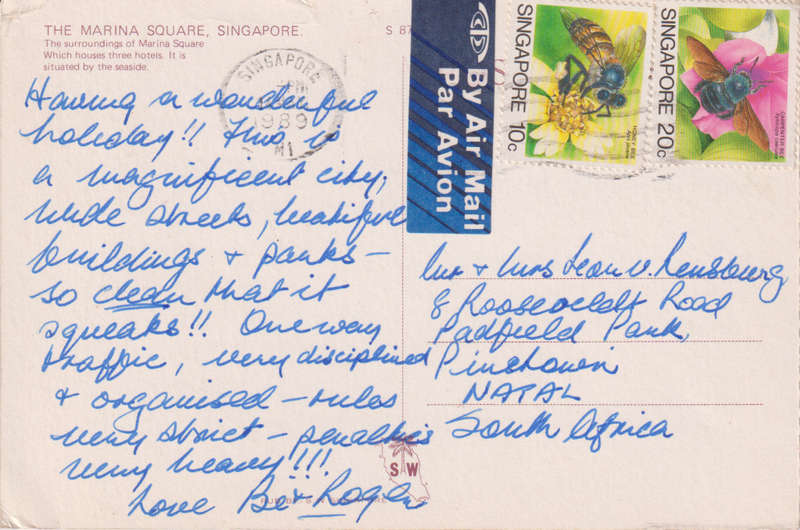 THE MARINA SQUARE, SINGAPORE.
The surroundings of Marina Square
Which houses three hotels. It is
situated by the seaside.
S 87
SINGAPORE
1989
By Air Mail
Par Avion
SINGAPORE 10c
HONEY BEE
SINGAPORE 20c
CARPENTER BEE
Having a wonderful
holiday!! This is
a magnificent city,
wide streets, beatiful
buildings + parks –
so clean that it
squeaks!! One way
traffic, very disciplined
+ organised – rules
very strict – penalties
very heavy!!!
Love Bé + Roger
Mr + Mrs Leon v. Rensburg
8 Rooseveldt Road
Padfield Park,
Pinetown
NATAL
South Africa
S W